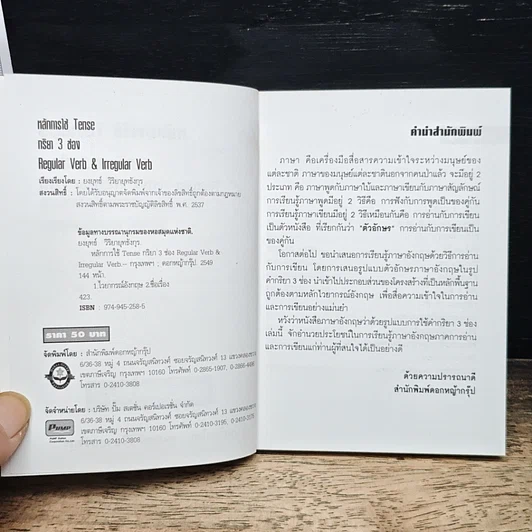 หลักการใช้ Tense
กริยา 3 ช่อง
Regular Verb & Irregular Verb
เรียบเรียงโดย : ยงยุทธ์ วิริยายุทธังกุร
สงวนสิทธิ์ : โดยได้รับอนุญาตจัดพิมพ์จากเจ้าของลิขสิทธิ์ถูกต้องตามกฎหมาย
สงวนสิทธิ์ตามพระราชบัญญัติลิขสิทธิ์ พ.ศ. 2537
ข้อมูลทางบรรณานุกรมของหอสมุดแห่งชาติ.
ยงยุทธ์ วิริยายุทธังกุร
หลักการใช้ Tense กริยา 3 ช่อง Regular Verb &
Irregular Verb.-- กรุงเทพฯ ; ดอกหญ้ากรุ๊ป. 2549
144 หน้า.
1.ไวยากรณ์อังกฤษ 2.ชื่อเรื่อง
423.
ISBN : 974-945-258-5
ราคา 50 บาท
จัดพิมพ์โดย : สำนักพิมพ์ดอกหญ้ากรุ๊ป
6/36-38 หมู่ 4 ถนนจรัญสนิทวงศ์ ซอยจรัญสนิทวงศ์ 13 แขวง
เขตภาษีเจริญ กรุงเทพฯ 10160 โทรศัพท์ 0-2865-1907,
โทรสาร 0-2410-3808
จัดจำหน่ายโดย : บริษัท ปั๊ม สเตชั่น คอร์เปอเรชั่น จำกัด
6/36-38 หมู่ 4 ถนนจรัญสนิทวงศ์ ซอยจรัญสนิทวงศ์ 13 แขวง
เขตภาษีเจริญ กรุงเทพฯ 10160 โทรศัพท์ 0-2410-3195,
โทรสาร 0-2410-3808
PUMP
คำนำสำนักพิมพ์
ภาษา คือเครื่องมือสื่อสารความเข้าใจระหว่างมนุษย์ของ
แต่ละชาติ ภาษาของมนุษย์แต่ละชาตินอกจากคนป่าแล้ว จะมีอยู่ 2
ประเภท คือ ภาษาพูดกับภาษาใบ้และภาษาเขียนกับภาษาสัญลักษณ์
การเรียนรู้ภาษาพูดมีอยู่ 2 วิธีคือ การฟังกับการพูดเป็นของคู่กัน
การเรียนรู้ภาษาเขียนมีอยู่ 2 วิธีเหมือนกันคือ การอ่านกับการเขียน
เป็นตัวหนังสือ ที่เรียกกันว่า "ตัวอักษร" การอ่านกับการเขียนเป็น
ของคู่กัน
โอกาสต่อไป ขอนำเสนอการเรียนรู้ภาษาอังกฤษด้วยวิธีการอ่าน
กับการเขียน โดยการเสนอรูปแบบตัวอักษรภาษาอังกฤษในรูป
คำกริยา 3 ช่อง นำเข้าไปประกอบส่วนของโครงสร้างที่เป็นหลักพื้นฐาน
ถูกต้องตามหลักไวยากรณ์อังกฤษ เพื่อสื่อความเข้าใจในการอ่าน
และการเขียนอย่างแม่นยำ
หวังว่าหนังสือภาษาอังกฤษว่าด้วยรูปแบบการใช้คำกริยา 3 ช่อง
เล่มนี้ จักอำนวยประโยชน์ในการเรียนรู้ภาษาอังกฤษภาคการอ่าน
และการเขียนแก่ท่านผู้ที่สนใจได้เป็นอย่างดี
ด้วยความปรารถนาดี
สำนักพิมพ์ดอกหญ้ากรุ๊ป